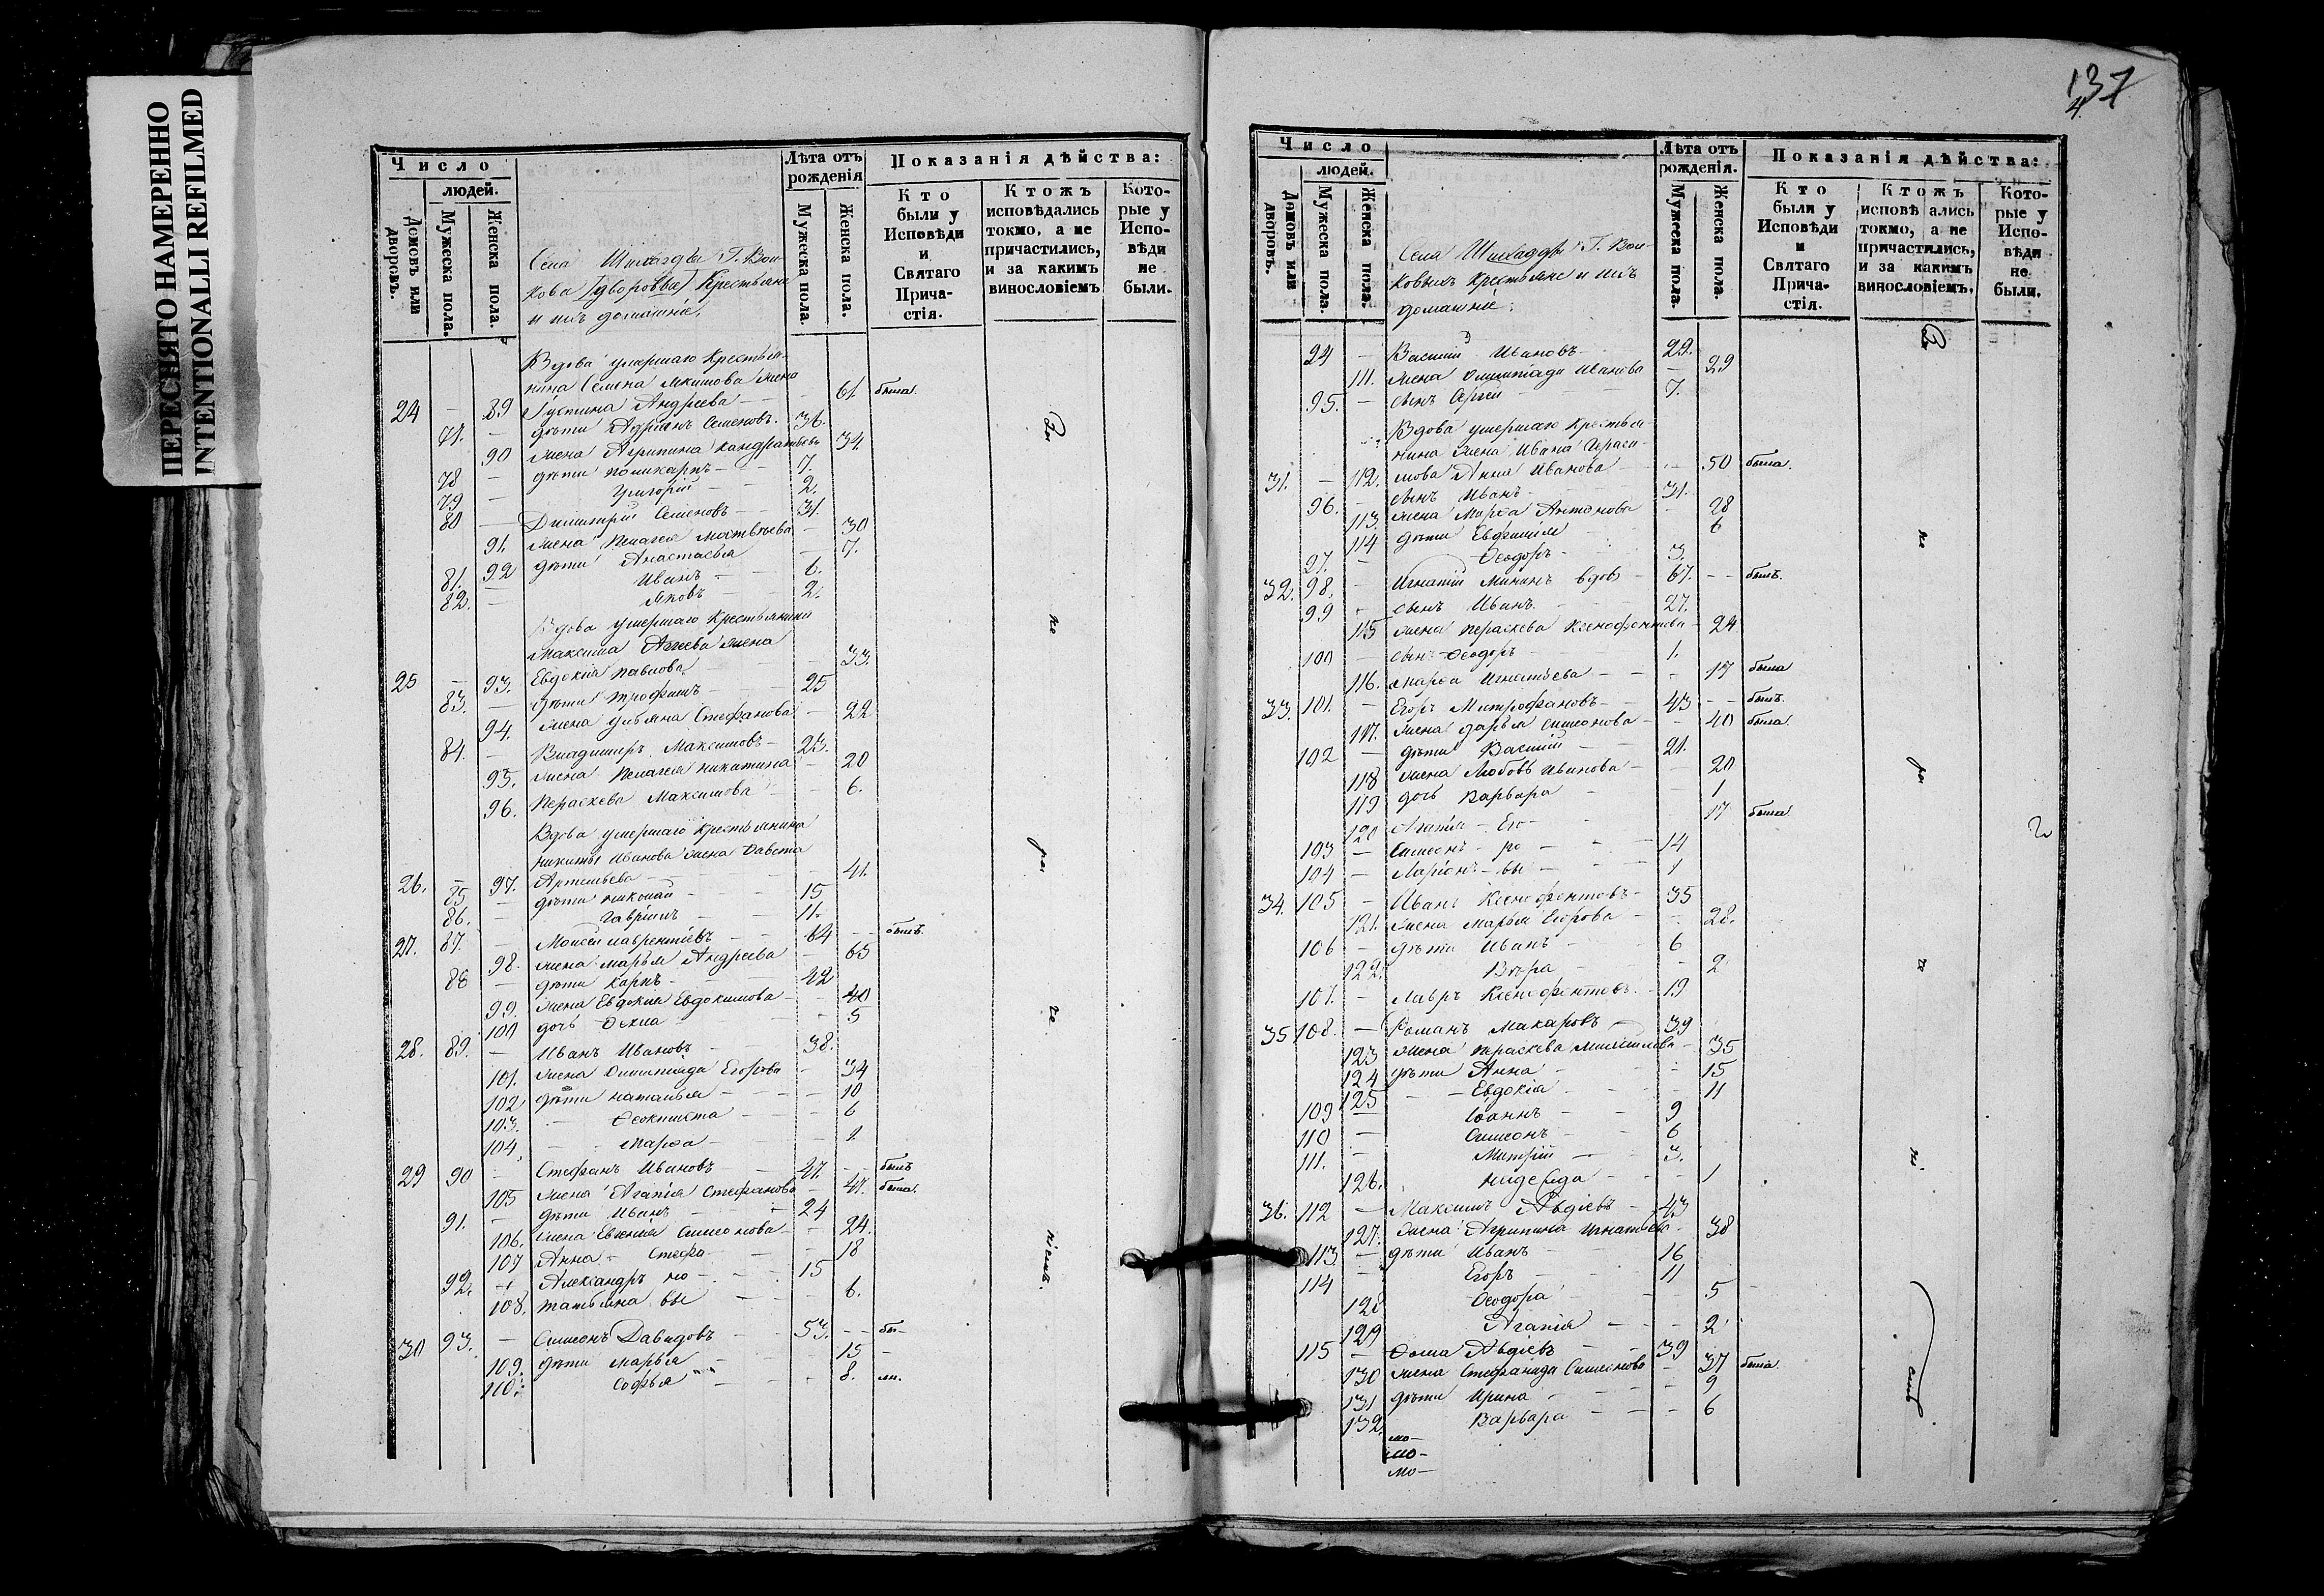 ПЕРЕСНЯТО НАМЕРЕННО
INTENTIONALLI REFILMED
Число
людей.
Домовъ или дворовъ.
Мужеска пола.
Женска пола.
Лѣта отъ рожденія
Мужеска пола.
Женска пола.
Показанія дѣйства:
Кто были у Исповѣди и Святаго Прича-стія.
Ктожъ исповѣдались токмо, а не причастились, и за какимъ винословіемъ
Кото-рые у Испо-вѣди не были.
Села Г. Вои-
кова [дворовые] Крестьяне
и ихъ домашніе,
Вдова умершаго Крестья-
нина Семена жена
24 — 89 Андреева — 61 была.
71. — дѣти Адріанъ Семеновъ. 36.
90 жена Агрипина Кандратьева 34.
78 — дѣти Поликарпъ — 7.
79 — Григорій — 2.
80 — Димитрій Семеновъ — 31.
91. жена Пелагея Матвѣева — 30
92 дѣти Анастасья — 7.
81. — Иванъ — 6.
82. — Яковъ — 2.
Вдова умершаго Крестьянина
Максима жена
25 — 93. Евдокия Павлова — 33.
83. — дѣти Трофимъ — 25
94. жена Ульяна Стефанова — 22
84. — Владимиръ Максимовъ — 23.
95. жена Пелагея Никитина — 20
96. Параскева Максимова — 6.
Вдова умершаго Крестьянина
Никиты Иванова жена
26. — 97. Артемьева — 41.
85 — дѣти Николай — 15
86. — Гавріилъ — 11.
27. 87. — Моисей Лаврентіевъ — 64 — былъ.
98. жена Марья Андреева — 65
88 — дѣти Карпъ — 42
99. жена Евдокия Евдокимова — 40
100 дочь Фекла — 5
28. 89. — Иванъ Ивановъ — 38.
101. жена Олимпиада Егорова — 34
102 дѣти Наталья — 10
103. — Феоктиста — 6
104. — Марѳа — 1.
29 90 — Стефанъ Ивановъ — 47. — былъ
105 жена Агапія Стефанова — 47. была.
91. — дѣти Иванъ — 24
106. жена Евгенія Симеонова — 24.
107 Анна — Стефа — 18
92. — Александръ но — 15
108. Татьяна вы — 6.
30 93. — Симеонъ Давидовъ — 53. — бы-
109. дѣти Марья — 15 —
110. Софья — 8. ли.
За
не
ра
че
ніемъ.
137
4.
Число
людей.
Домовъ или дворовъ.
Мужеска пола.
Женска пола.
Лѣта отъ рожденія.
Мужеска пола.
Женска пола.
Показанія дѣйства:
Кто были у Исповѣди и Святаго Прича-стія.
Ктожъ исповѣ ались токмо, а не причастились, и за какимъ винословіемъ.
Кото-рые у Испо-вѣди не были.
Села Г. Вои-
ковыхъ Крестьяне и ихъ
домашніе:
24 — Василій Ивановъ — 22.
111. жена Олимпіада Иванова — 29
95. — сынъ Сергѣй — 7.
Вдова умершаго Крестья-
нина жена Ивана Гераси-
31. — 112. мова Анна Иванова — 50 была.
96. — сынъ Иванъ — 31.
113. жена Марѳа Антонова — 28
114 дѣти Евфимія — 6
97. — Ѳеодоръ — 3.
32. 98. — Игнатій Мининъ вдов — 67. — былъ.
99 — сынъ Иванъ — 27.
115 жена Параскева Ксенофонтова — 24
100 — сынъ Ѳеодоръ — 1.
116. Марѳа Игнатьева — 17 была
33. 101. — Егоръ Митрофановъ — 43 — былъ.
117. жена Дарья Симеонова — 40 была.
102 — дѣти Василій — 21.
118 жена Любовь Иванова — 20
119 дочь Варвара — 1
120 Агапія — Его — 17 была
103 — Симеонъ — ро — 14
104 — Ларіонъ — вы — 1
34. 105 — Иванъ Ксенофонтовъ — 35
121. жена Марья Егорова — 28.
106 — дѣти Иванъ — 6
122. Вѣра — 2
107. — Лавръ Ксенофонтовъ — 19
35 108. — Романъ Макаровъ — 39
123 жена Параскева Михайлова — 35
124 дѣти Анна — 15
125 — Евдокія — 11
109 — Іоаннъ — 9
110 — Симеонъ — 6
111. — Митрій — 3.
126. — 1
36. 112 — Максимъ Авдіевъ — 43
127. жена Агрипина Игнатьева — 38
113 — дѣти Иванъ — 16
114 — Егоръ — 11
128 Ѳеодора — 5
129 Агапія — 2
115 — Ѳома Авдіевъ — 39
130 жена Стефанида Симеонова — 37 была.
131 дѣти Ирина — 9
132. Варвара — 6
За
не
ра
че
ні
емъ.